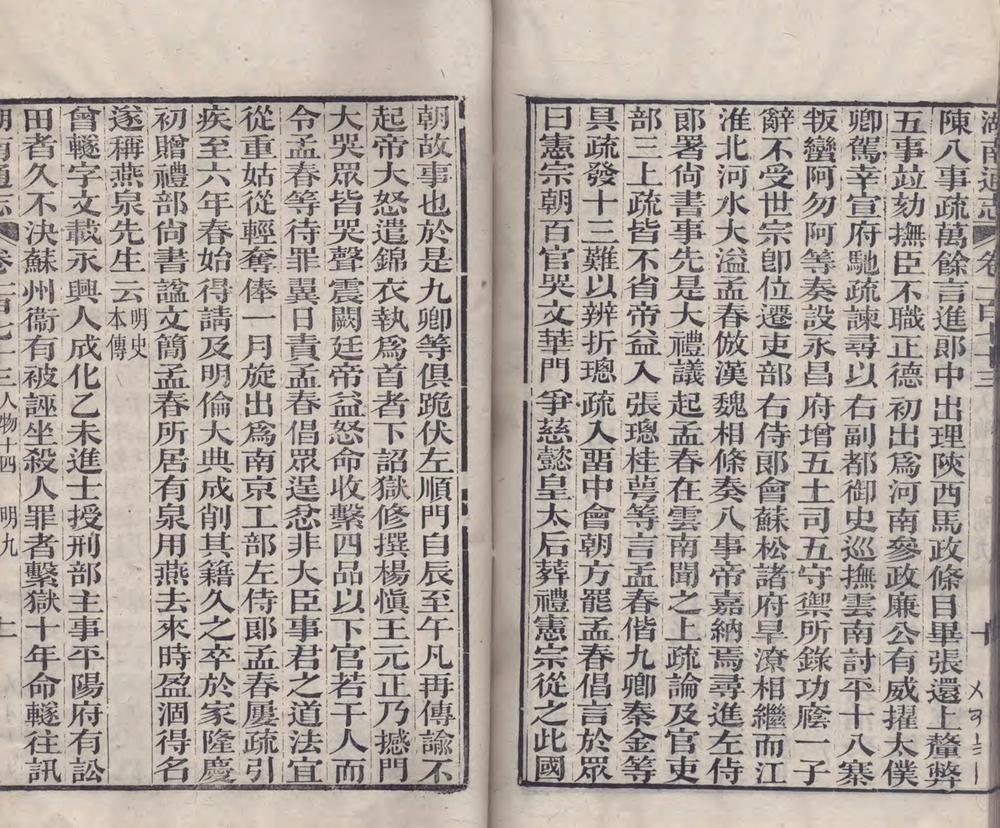 湖南通志 卷一百七十三
陳八事疏萬餘言進郎中出理陝西馬政條目畢張還上釐弊
五事竝劾撫臣不職正德初出爲河南參政廉公有威擢太僕
卿駕幸宣府馳疏諫尋以右副都御史巡撫雲南討平十八寨
叛蠻阿勿阿等奏設永昌府增五土司五守禦所錄功廕一子
辭不受世宗卽位遷吏部右侍郎會蘇松諸府旱潦相繼而江
淮北河水大溢孟春倣漢魏相條奏八事帝嘉納焉尋進左侍
郎署尙書事先是大禮議起孟春在雲南聞之上疏論及官吏
部三上疏皆不省帝益入張璁桂萼等言孟春偕九卿秦金等
具疏發十三難以辨折璁疏入畱中會朝方罷孟春倡言於眾
曰憲宗朝百官哭文華門爭慈懿皇太后葬禮憲宗從之此國
朝故事也於是九卿等俱跪伏左順門自辰至午凡再傳諭不
起帝大怒遣錦衣執爲首者下詔獄修撰楊愼王元正乃撼門
大哭眾皆哭聲震闕廷帝益怒命收繫四品以下官若干人而
令孟春等待罪翼日責孟春倡眾逞忿非大臣事君之道法宜
從重姑從輕奪俸一月旋出爲南京工部左侍郎孟春屢疏引
疾至六年春始得請及明倫大典成削其籍久之卒於家隆慶
初贈禮部尙書諡文簡孟春所居有泉用燕去來時盈涸得名
遂稱燕泉先生云明史本傳
曾轍字文載永興人成化乙未進士授刑部主事平陽府有訟
田者久不決蘇州衞有被誣坐殺人罪者繫獄十年命轍往訊
湖南通志 卷一百七十三 人物十四 明九